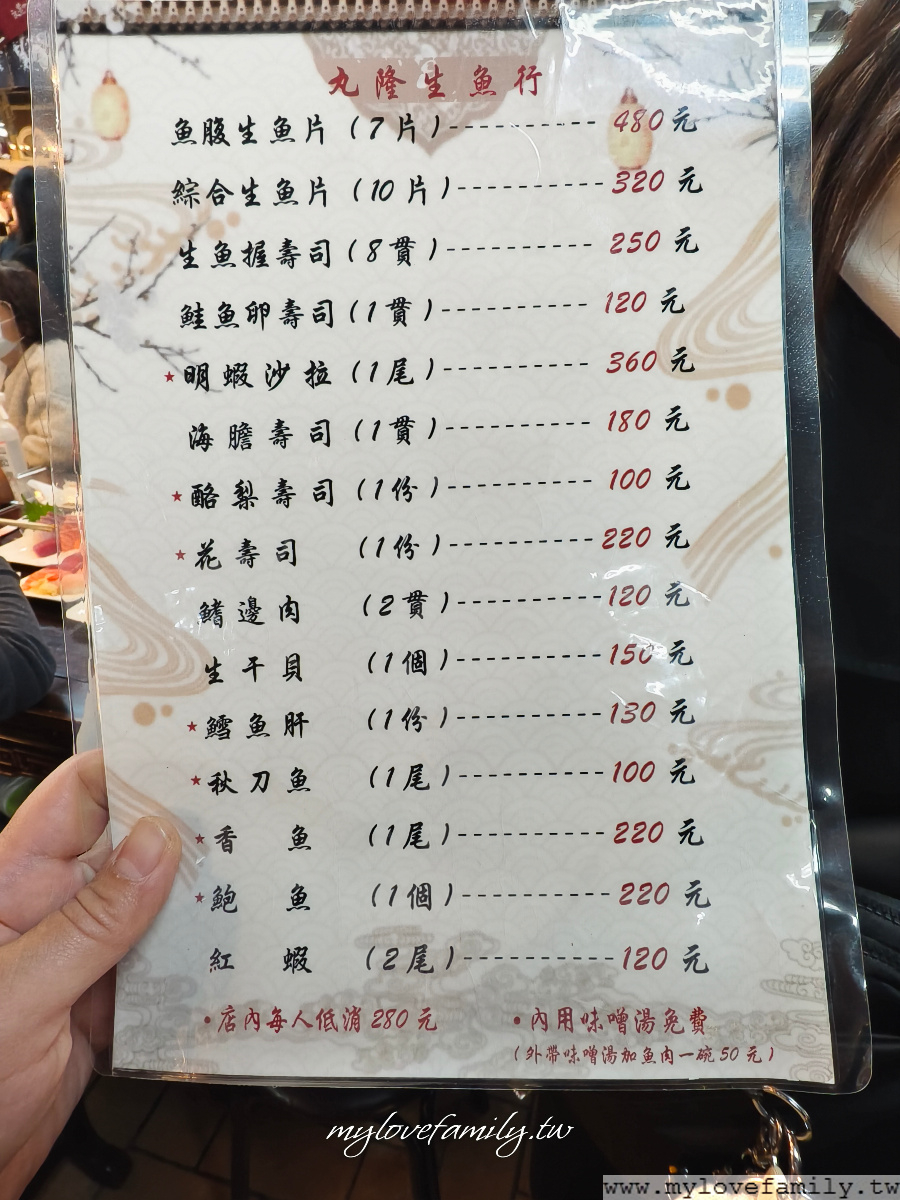 丸隆生魚行
魚腹生魚片(7片)----------- 480元
綜合生魚片(10片)----------- 320元
生魚握壽司(8貫)----------- 250元
鮭魚卵壽司(1貫)----------- 120元
★明蝦沙拉(1尾)----------- 360元
海膽壽司(1貫)----------- 180元
★酪梨壽司(1份)----------- 100元
★花壽司(1份)----------- 220元
鰭邊肉(2貫)----------- 120元
生干貝(1個)----------- 150元
★鱈魚肝(1份)----------- 130元
★秋刀魚(1尾)----------- 100元
★香魚(1尾)----------- 220元
★鮑魚(1個)----------- 220元
紅蝦(2尾)----------- 120元
•店內每人低消280元 •內用味噌湯免費
(外帶味噌湯加魚肉一碗50元)
mylovefamily.tw
www.mylovefamily.tw